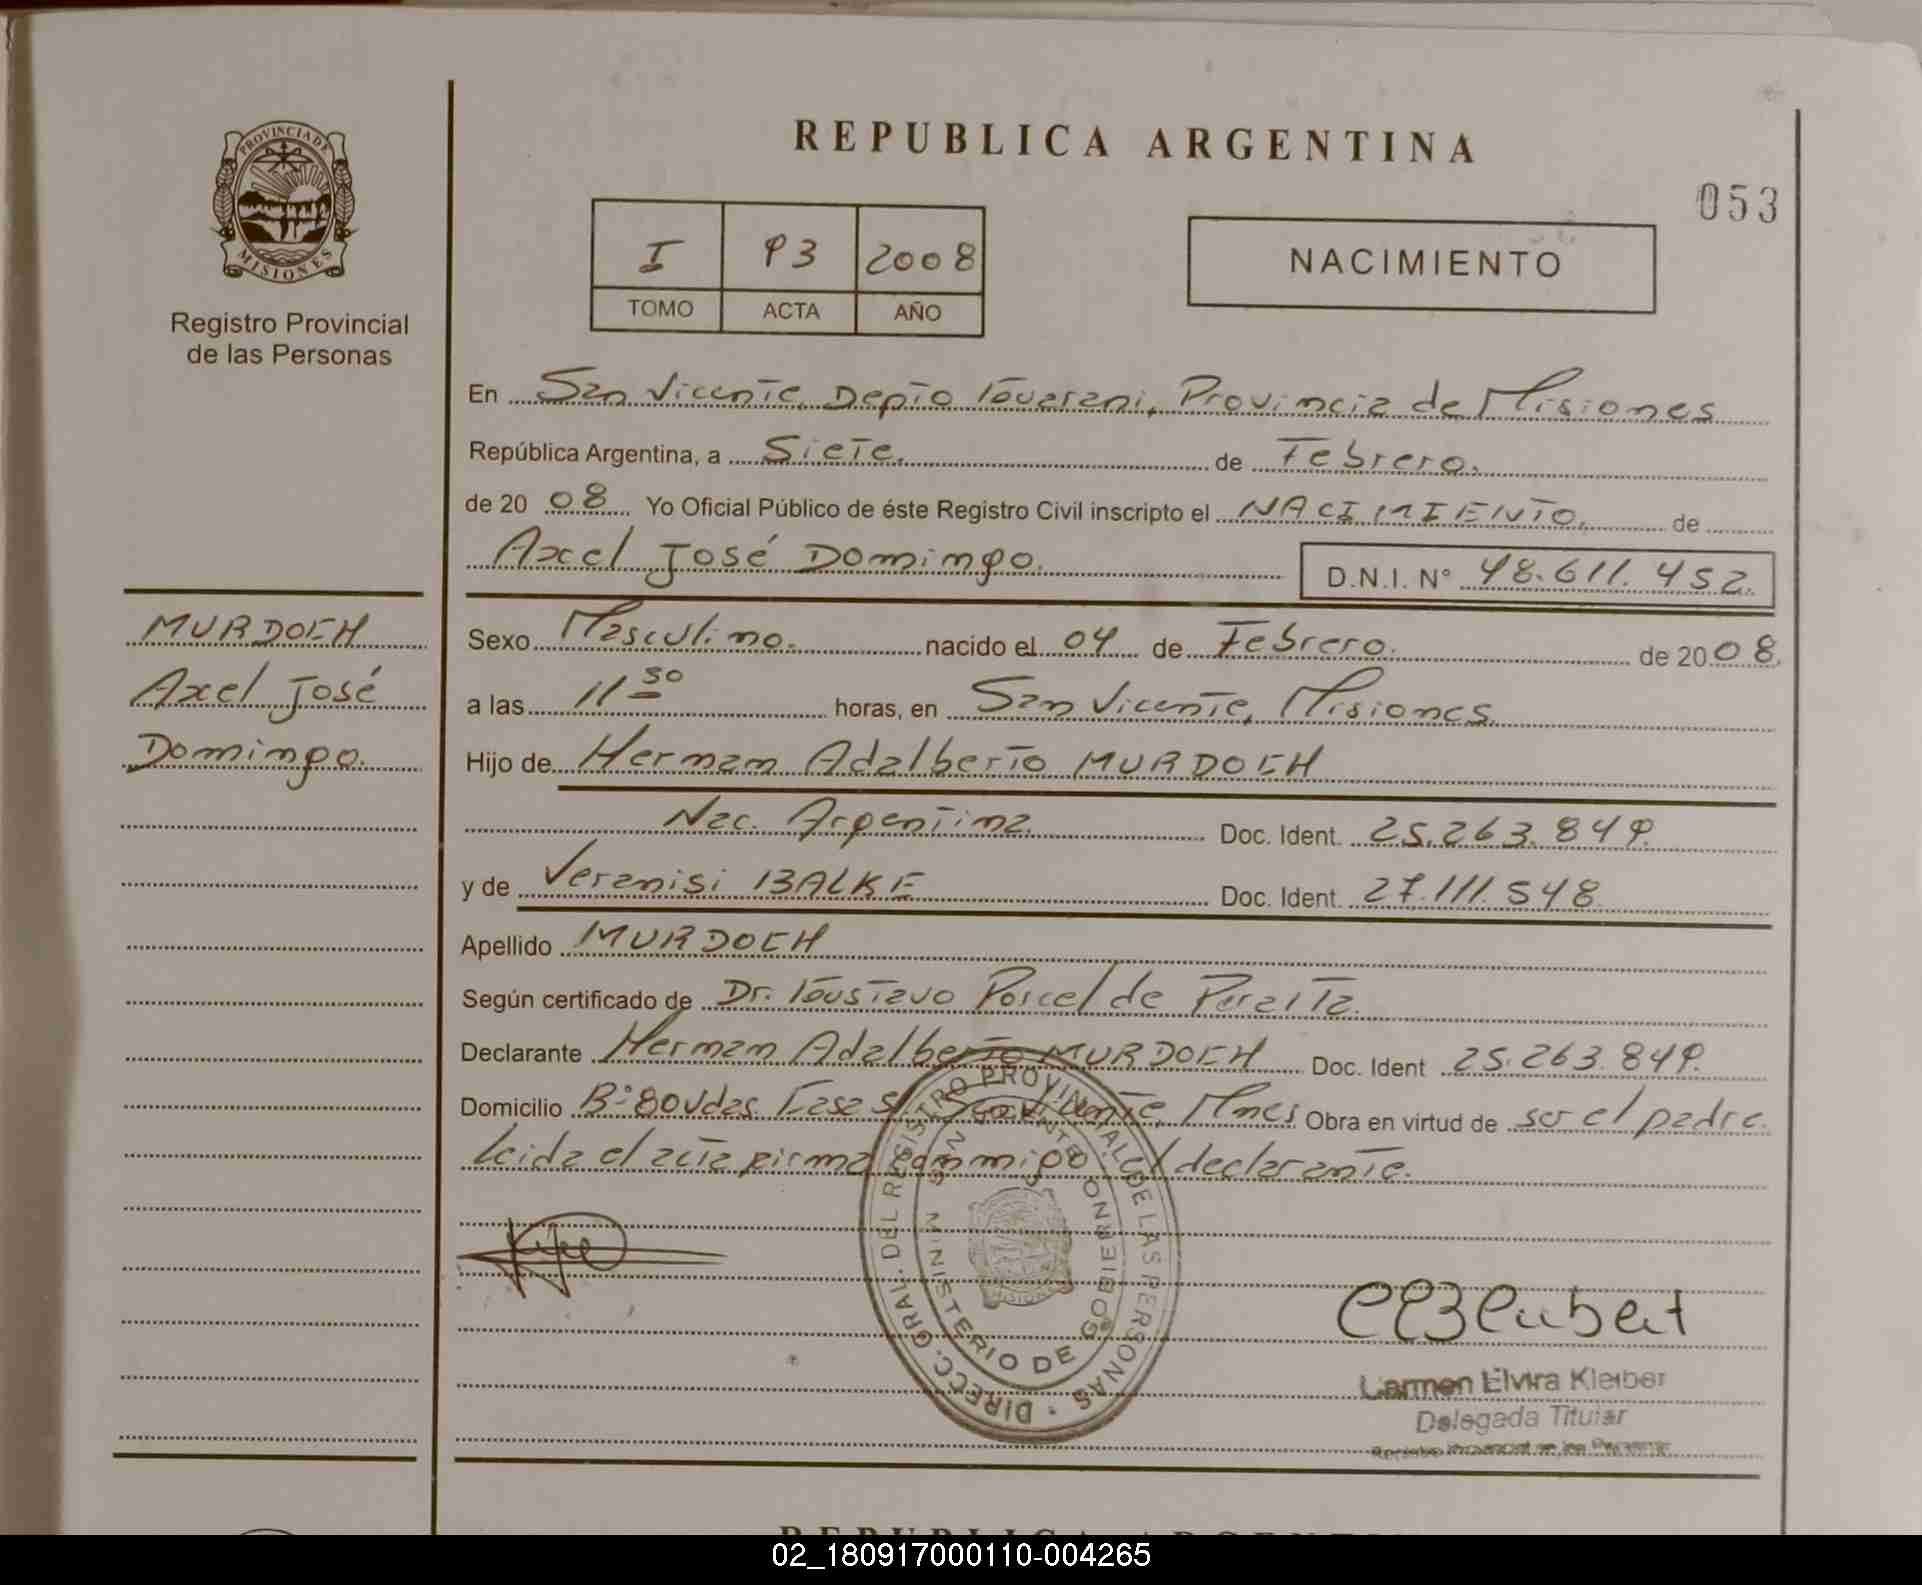 REPUBLICA ARGENTINA
053
PROVINCIA DE
MISIONES
Registro Provincial
de las Personas
I 93 2008
TOMO ACTA AÑO
NACIMIENTO
En San Vicente, Depto Guarani, Provincia de Misiones
República Argentina, a Siete. de Febrero.
de 20 08 Yo Oficial Público de éste Registro Civil inscripto el NACIMIENTO, de
Axel José Domingo. D.N.I. N° 48.611.452.
MURDOCH
Axel José
Domingo.
Sexo Masculino. nacido el 04 de Febrero. de 20 08.
a las 11 30 horas, en San Vicente, Misiones
Hijo de Hernan Adalberto MURDOCH
Nac. Argentina. Doc. Ident. 25.263.849.
y de Veranisi BALKE Doc. Ident. 27.111.548
Apellido MURDOCH
Según certificado de Dr. Gustavo Porcel de Peralta.
Declarante Hernan Adalberto MURDOCH Doc. Ident 25.263.849.
Domicilio B° 80 Vdas. Casa San Vicente, Mnes Obra en virtud de ser el padre.
Leida el acta firma conmigo el declarante.
DIRECC. GRAL. DEL REGISTRO PROVINCIAL DE LAS PERSONAS
MINISTERIO DE GOBIERNO
SAN VICENTE
MISIONES
Carmen Elvira Kleiber
Delegada Titular
Registro Provincial de las Personas
REPUBLICA ARGENTI
02_180917000110-004265